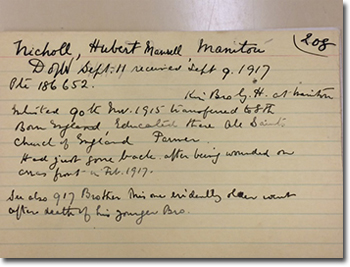 Nicholl, Hubert Mansell Manitou 208
D of W Sept. 11 received Sept 9. 1917
Pte 186652. 
Kin Bro G. H. at Manitou
Enlisted 90th Nov. 1915 transferred to 8th
Born England, Educated there All Saints
Church of England Farmer
Had just gone back after being wounded on
arras front in Feb. 1917.
See also 917 Brother this one evidently older went
after death of his younger Bro.